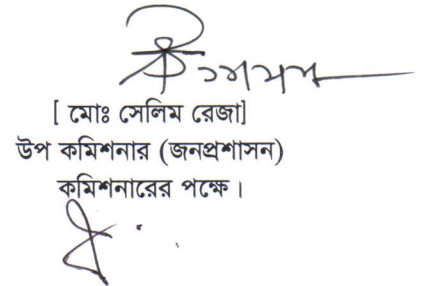 [ মোঃ সেলিম রেজা]
উপ কমিশনার (জনপ্রশাসন)
কমিশনারের পক্ষে।